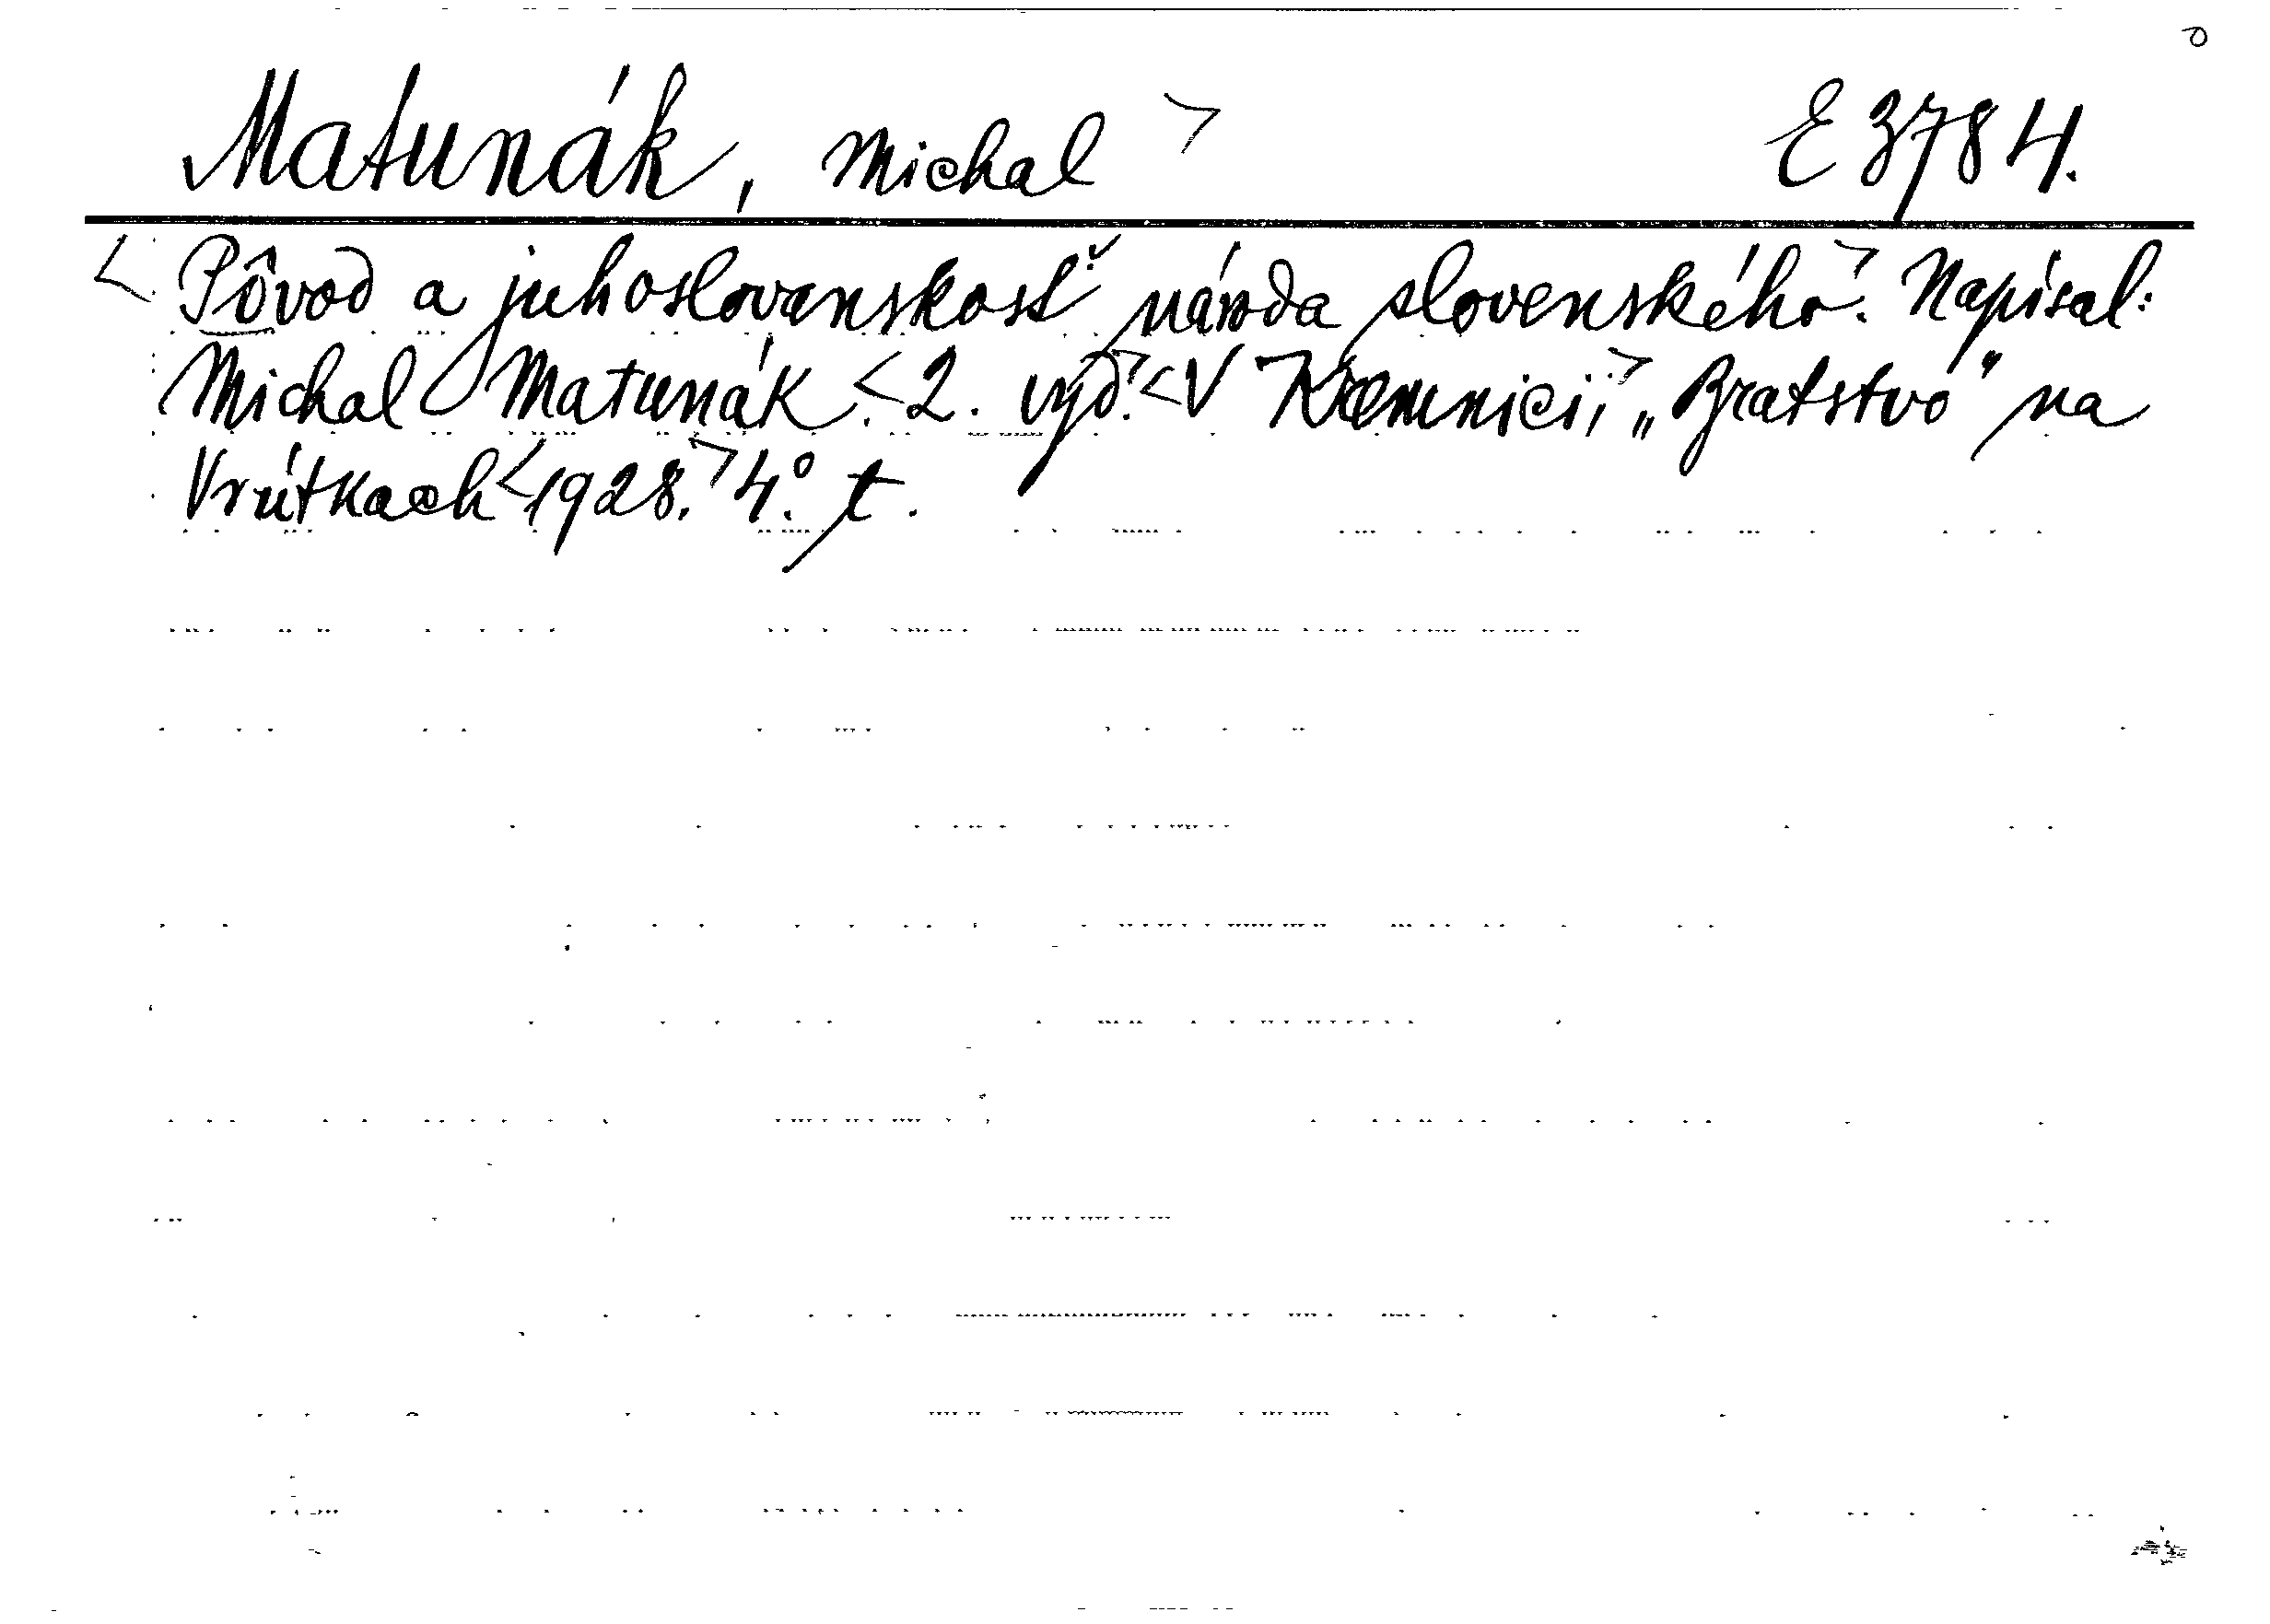 Matunák, Michal > E 3784.
< Pôvod a juhoslovanskosť národa slovenského.> Napísal:
Michal Matunák.< 2. vyd.> < V Kremnici,> „Bratstvo" na
Vrútkach < 1928.> 4.° t.